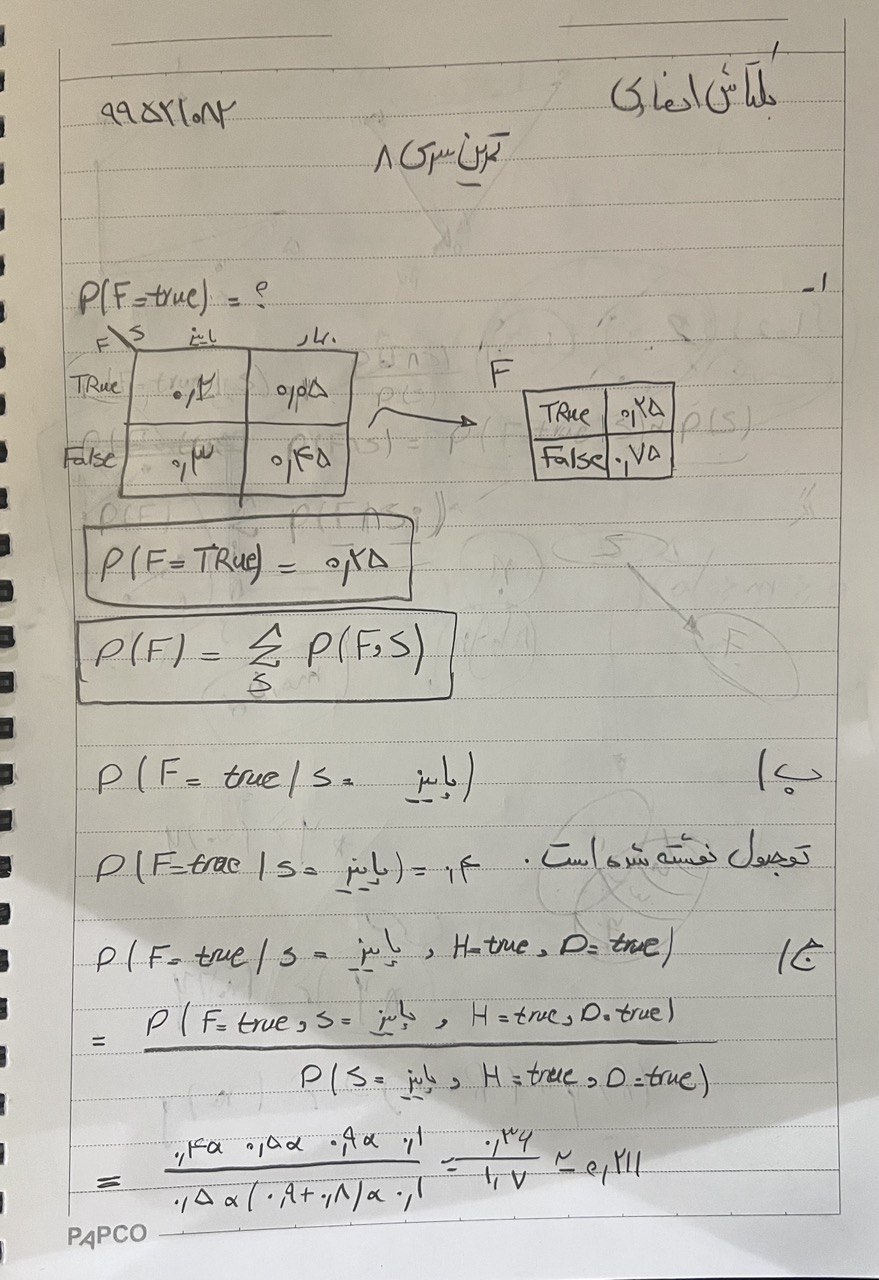 ۹۹۵۲۱۰۸۲
تمرین سری ۸
۱-
P(F=true) = ؟
F S پاییز بهار
TRue ۰,۲ ۰,۰۵
False ۰,۳ ۰,۴۵
F
TRue ۰,۲۵
False ۰,۷۵
P(F=TRue) = ۰,۲۵
P(F) = Σ P(F,S)
S
ب)
P(F=true/S=پاییز)
P(F=true/S=پاییز) = ۰,۴ توجدول نوشته شده است.
ج)
P(F=true/S=پاییز, H=true, D=true)
= P(F=true, S=پاییز, H=true, D=true)
P(S=پاییز, H=true, D=true)
= ۰,۴ × ۰,۵ × ۰,۹ × ۰,۱ = ۰,۳۶ ≃ ۰,۲۱۱
۰,۵ × (۰,۹+۰,۸) × ۰,۱ ۱,۷
PAPCO